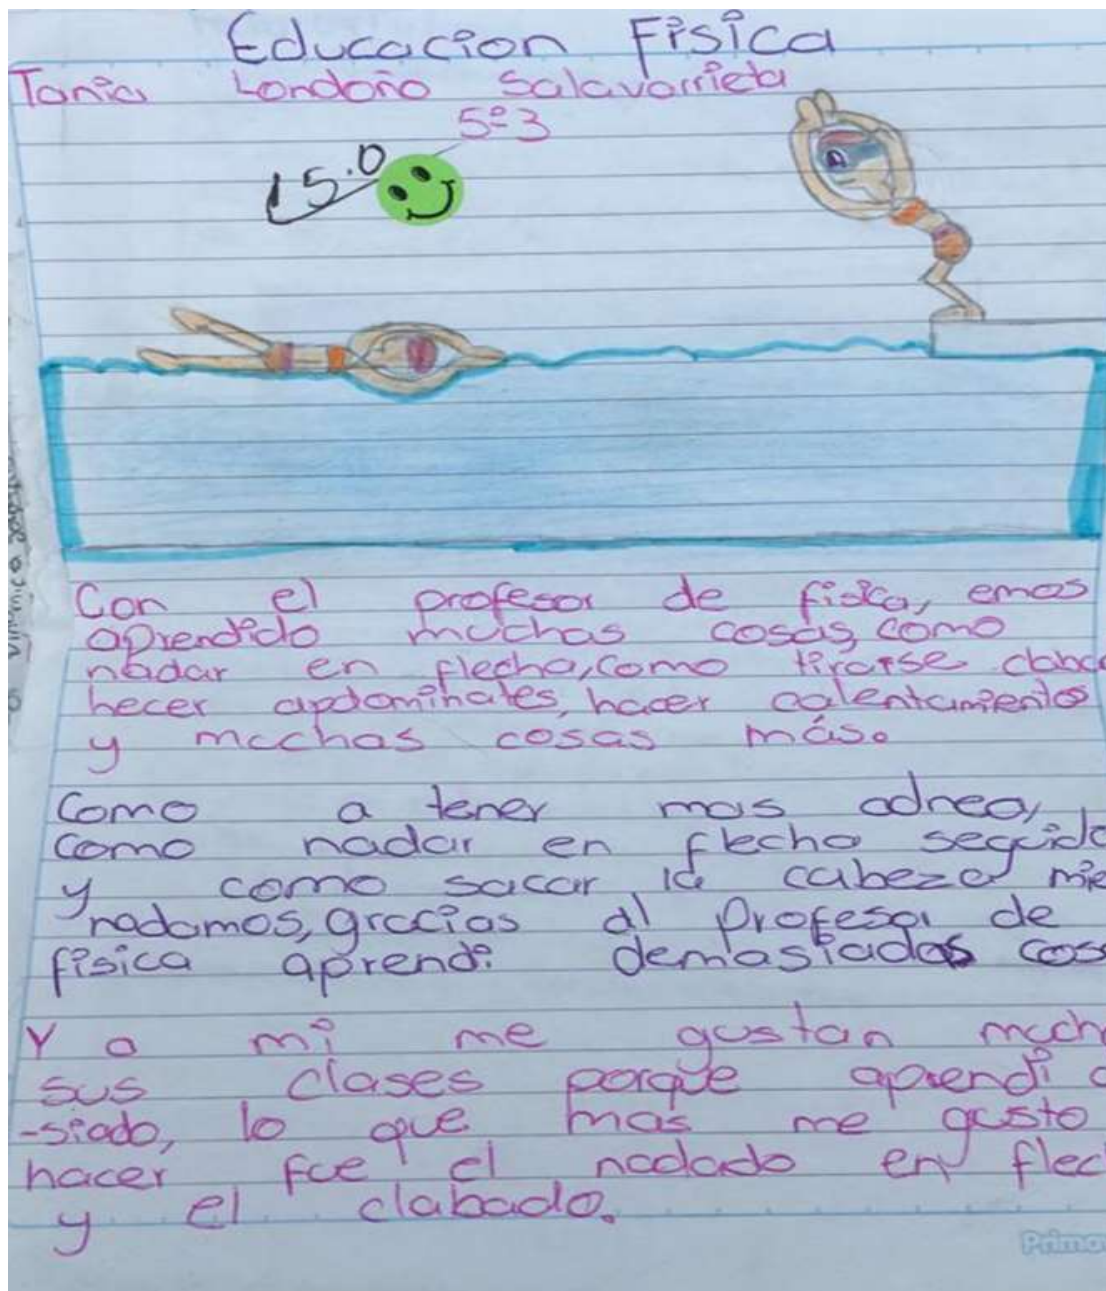 Educacion Física
Tania Londoño Salavarrieta
5º3
5.0
Con el profesor de fisica, emos
aprendido muchas cosas, como
nadar en flecha, como tirarse claba
hecer apdominales, hacer calentamientos
y muchas cosas más.
Como a tener mas adnea,
como nadar en flecha seguido
y como sacar la cabeza mie
nadamos, gracias al profesor de
física aprendi demasiadas cos
Y a mi me gustan much
sus clases porque aprendi
-siado, lo que mas me gusto
hacer fue el nadado en flec
y el clabado.
Prima